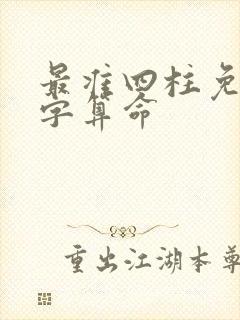 最准四柱免
字算命
重出江湖本尊